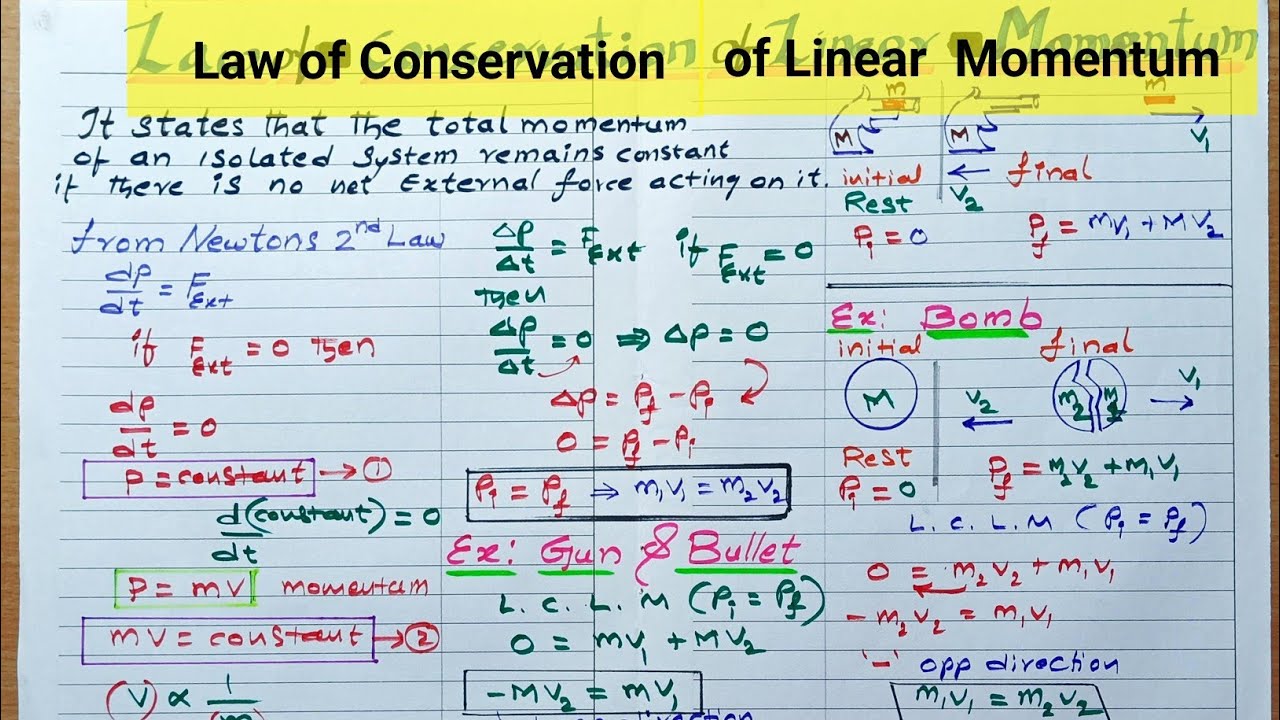 Law of Conservation of Linear Momentum
It states that the total momentum
of an isolated system remains constant
if there is no net External force acting on it.
from Newtons 2nd Law
dp/dt = F Ext
if F Ext = 0 then
dp/dt = 0
P = constant → ①
d(constant)/dt = 0
P = mv momentum
mv = constant → ②
(v) ∝ 1/(m)
Δp/Δt = F Ext if F Ext = 0
then
Δp/Δt = 0 ⇒ Δp = 0
Δp = Pf - Pi
0 = Pf - Pi
Pi = Pf ⇒ m1v1 = m2v2
Ex: Gun & Bullet
L. C. L. M (Pi = Pf)
0 = mv1 + MV2
-MV2 = mv1
m
M M
v1
initial ← final
Rest v2
Pi = 0 Pf = mv1 + MV2
Ex: Bomb
initial final
M v2 m2 m1 v1
Rest
Pi = 0 Pf = m2v2 + m1v1
L. C. L. M (Pi = Pf)
0 = m2v2 + m1v1
-m2v2 = m1v1
'-' opp direction
m1v1 = m2v2